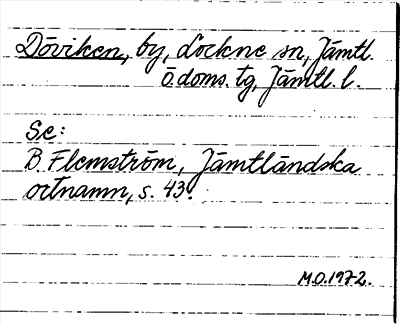 Döviken, by, Lockne sn, Jämtl.
Ö. doms. tg, Jämtl. l.
Se:
B. Flemström, Jämtländska
ortnamn, s. 43.
M.O. 1972.